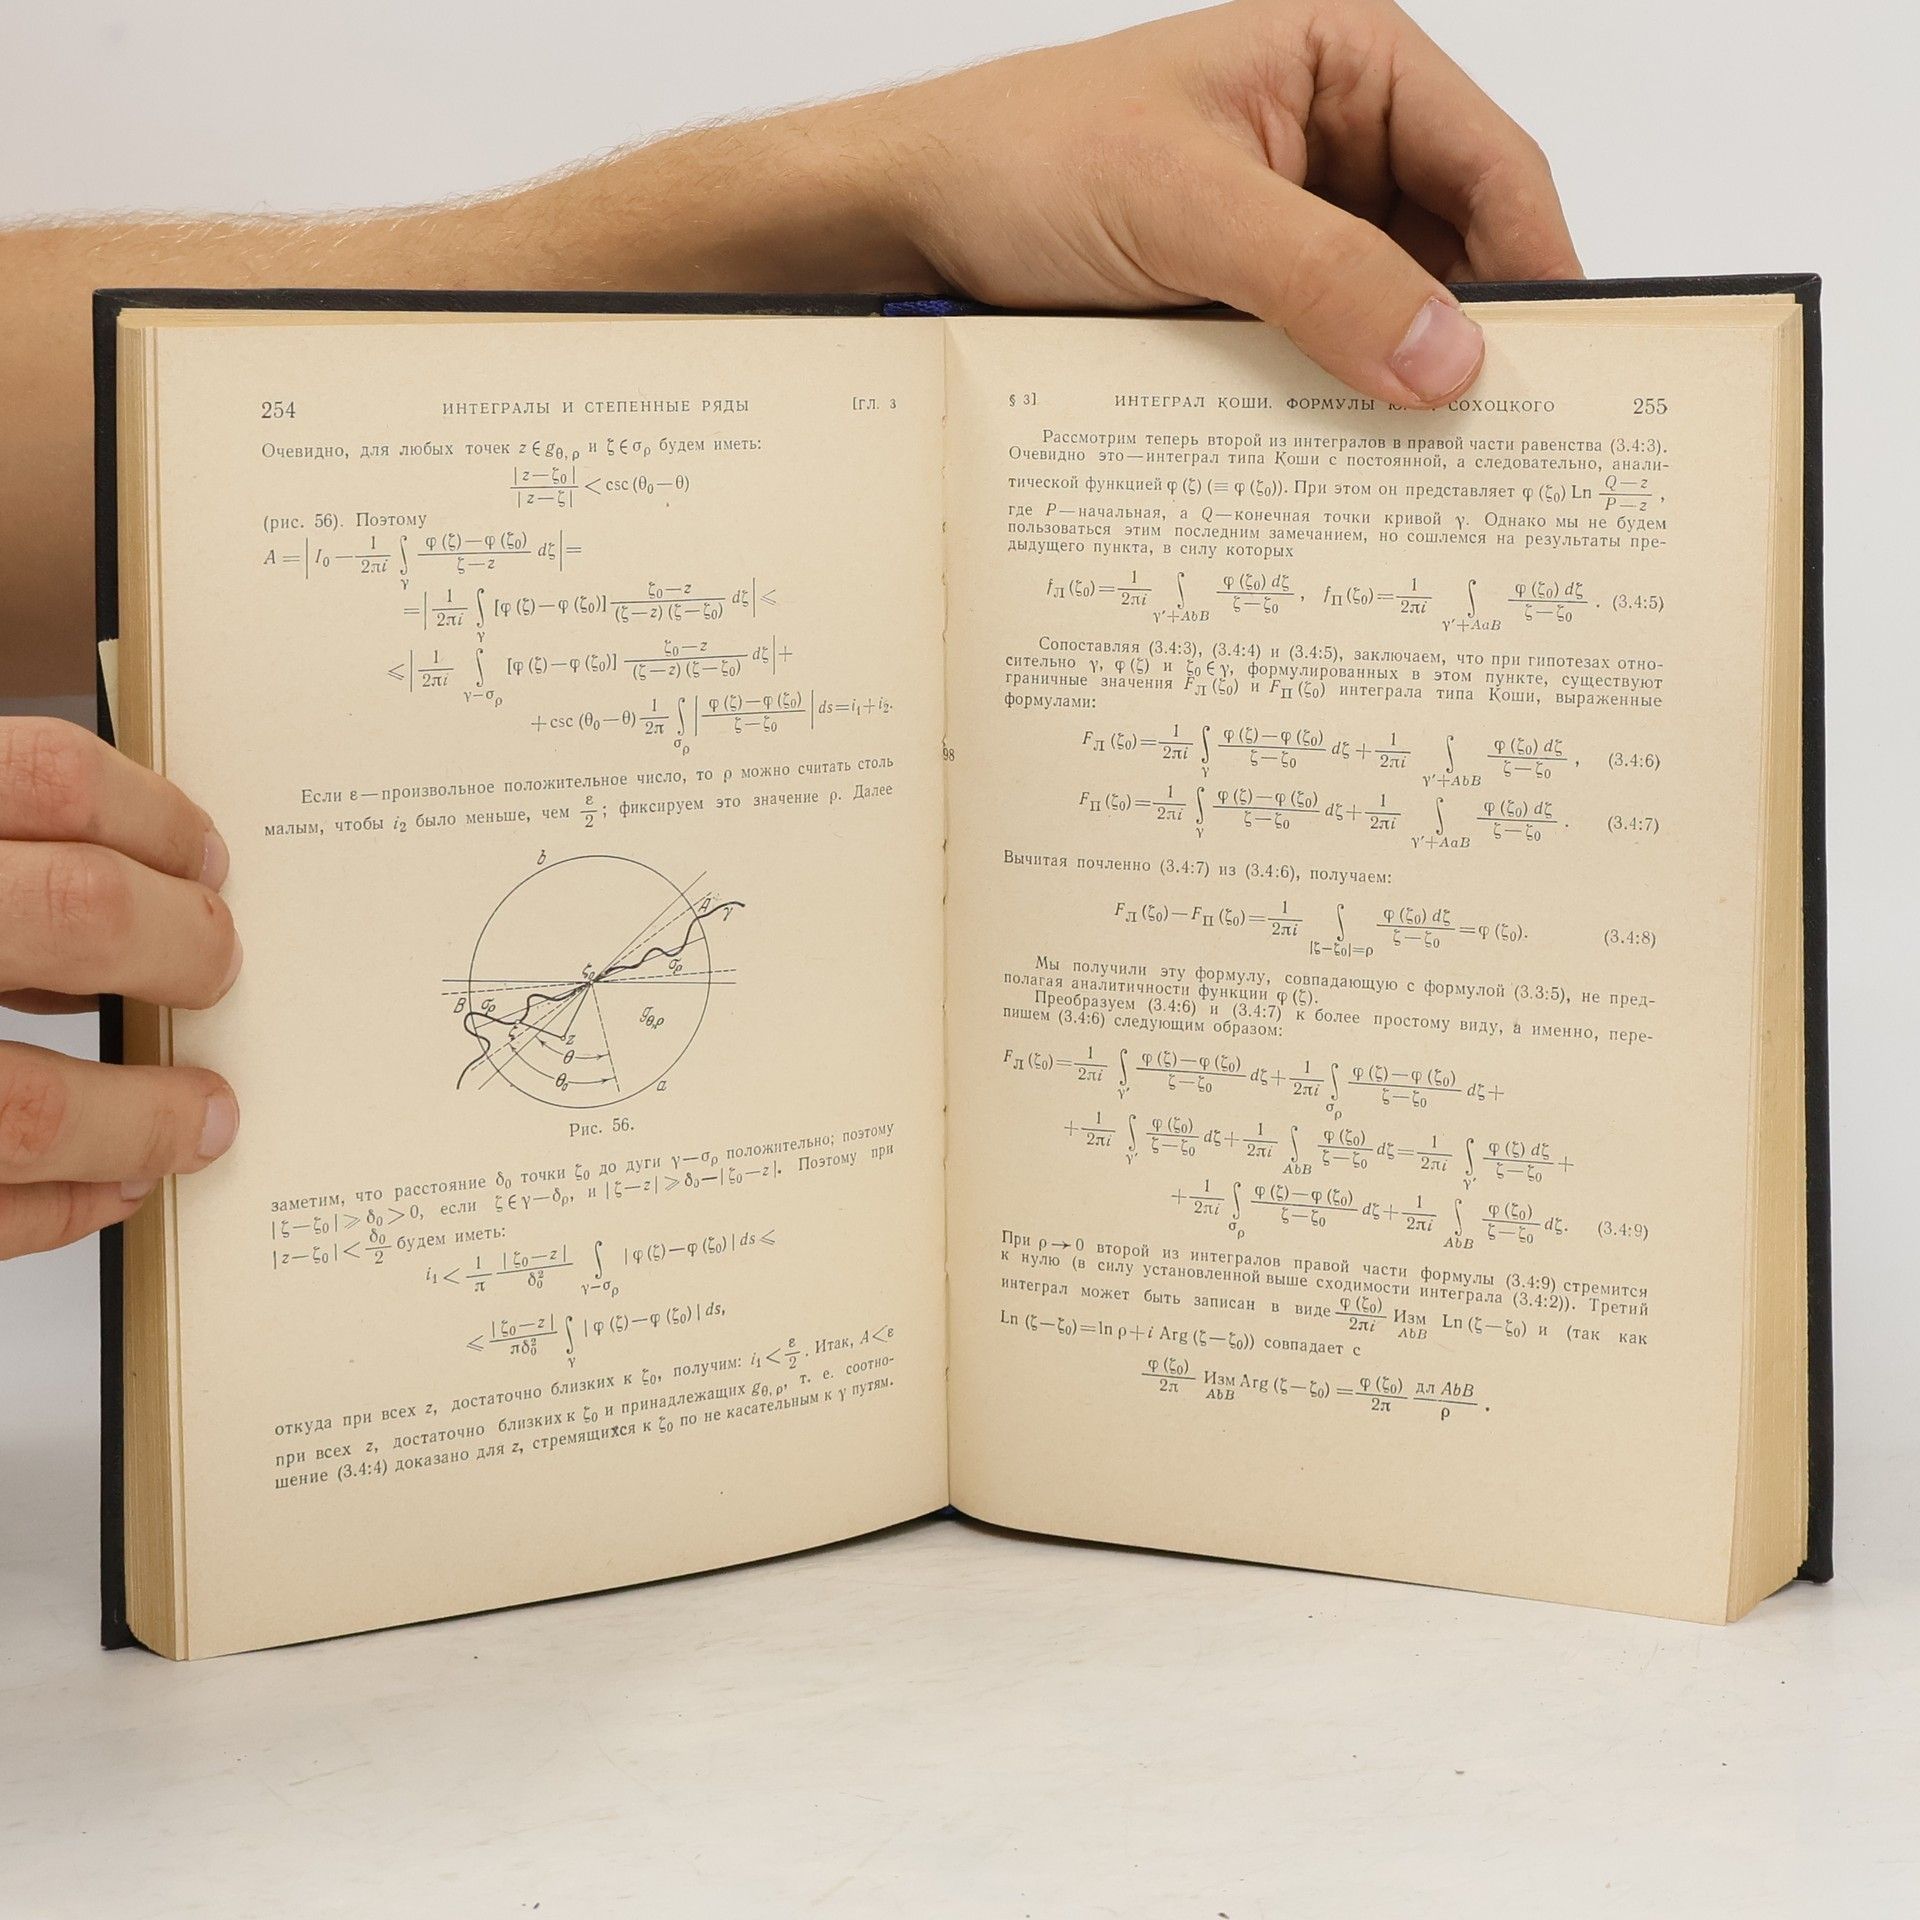 254 ИНТЕГРАЛЫ И СТЕПЕННЫЕ РЯДЫ [ГЛ. 3
Очевидно, для любых точек z ∈ g_{θ, ρ} и ζ ∈ σ_ρ будем иметь:
|z — ζ₀| / |z — ζ| < csc (θ₀ — θ)
(рис. 56). Поэтому
A = | I₀ — 1/2πi ∫_γ (φ (ζ) — φ (ζ₀))/(ζ — z) dζ | =
= | 1/2πi ∫_γ [φ (ζ) — φ (ζ₀)] (ζ₀ — z)/((ζ — z) (ζ — ζ₀)) dζ | ⩽
⩽ | 1/2πi ∫_{γ—σ_ρ} [φ (ζ) — φ (ζ₀)] (ζ₀ — z)/((ζ — z) (ζ — ζ₀)) dζ | +
+ csc (θ₀ — θ) 1/2π ∫_{σ_ρ} | (φ (ζ) — φ (ζ₀))/(ζ — ζ₀) | ds = i₁ + i₂.
Если ε — произвольное положительное число, то ρ можно считать столь
малым, чтобы i₂ было меньше, чем ε/2; фиксируем это значение ρ. Далее
b
A
γ
ζ₀
σ_ρ
B
σ_ρ
g_{θ,ρ}
ζ
z
θ
θ₀
a
Рис. 56.
заметим, что расстояние δ₀ точки ζ₀ до дуги γ — σ_ρ положительно; поэтому
|ζ — ζ₀| ⩾ δ₀ > 0, если ζ ∈ γ — δ_ρ, и |ζ — z| ⩾ δ₀ — |ζ₀ — z|. Поэтому при
|z — ζ₀| < δ₀/2 будем иметь:
i₁ < 1/π |ζ₀ — z|/δ₀² ∫_{γ—σ_ρ} |φ (ζ) — φ (ζ₀)| ds ⩽
⩽ |ζ₀ — z|/πδ₀² ∫_γ |φ (ζ) — φ (ζ₀)| ds,
откуда при всех z, достаточно близких к ζ₀, получим: i₁ < ε/2. Итак, A < ε
при всех z, достаточно близких к ζ₀ и принадлежащих g_{θ, ρ}, т. е. соотно-
шение (3.4:4) доказано для z, стремящихся к ζ₀ по не касательным к γ путям.
98
§ 3] ИНТЕГРАЛ КОШИ. ФОРМУЛЫ СОХОЦКОГО 255
Рассмотрим теперь второй из интегралов в правой части равенства (3.4:3).
Очевидно это — интеграл типа Коши с постоянной, а следовательно, анали-
тической функцией φ (ζ) (≡ φ (ζ₀)). При этом он представляет φ (ζ₀) Ln (Q — z)/(P — z),
где P — начальная, а Q — конечная точки кривой γ. Однако мы не будем
пользоваться этим последним замечанием, но сошлемся на результаты пре-
дыдущего пункта, в силу которых
f_Л (ζ₀) = 1/2πi ∫_{γ′+AbB} φ (ζ₀) dζ/(ζ — ζ₀), f_П (ζ₀) = 1/2πi ∫_{γ′+AaB} φ (ζ₀) dζ/(ζ — ζ₀). (3.4:5)
Сопоставляя (3.4:3), (3.4:4) и (3.4:5), заключаем, что при гипотезах отно-
сительно γ, φ (ζ) и ζ₀ ∈ γ, формулированных в этом пункте, существуют
граничные значения F_Л (ζ₀) и F_П (ζ₀) интеграла типа Коши, выраженные
формулами:
F_Л (ζ₀) = 1/2πi ∫_γ (φ (ζ) — φ (ζ₀))/(ζ — ζ₀) dζ + 1/2πi ∫_{γ′+AbB} φ (ζ₀) dζ/(ζ — ζ₀), (3.4:6)
F_П (ζ₀) = 1/2πi ∫_γ (φ (ζ) — φ (ζ₀))/(ζ — ζ₀) dζ + 1/2πi ∫_{γ′+AaB} φ (ζ₀) dζ/(ζ — ζ₀). (3.4:7)
Вычитая почленно (3.4:7) из (3.4:6), получаем:
F_Л (ζ₀) — F_П (ζ₀) = 1/2πi ∫_{|ζ—ζ₀|=ρ} φ (ζ₀) dζ/(ζ — ζ₀) = φ (ζ₀). (3.4:8)
Мы получили эту формулу, совпадающую с формулой (3.3:5), не пред-
полагая аналитичности функции φ (ζ).
Преобразуем (3.4:6) и (3.4:7) к более простому виду, а именно, пере-
пишем (3.4:6) следующим образом:
F_Л (ζ₀) = 1/2πi ∫_{γ′} (φ (ζ) — φ (ζ₀))/(ζ — ζ₀) dζ + 1/2πi ∫_{σ_ρ} (φ (ζ) — φ (ζ₀))/(ζ — ζ₀) dζ +
+ 1/2πi ∫_{γ′} φ (ζ₀)/(ζ — ζ₀) dζ + 1/2πi ∫_{AbB} φ (ζ₀)/(ζ — ζ₀) dζ = 1/2πi ∫_{γ′} φ (ζ) dζ/(ζ — ζ₀) +
+ 1/2πi ∫_{σ_ρ} (φ (ζ) — φ (ζ₀))/(ζ — ζ₀) dζ + 1/2πi ∫_{AbB} φ (ζ₀)/(ζ — ζ₀) dζ. (3.4:9)
При ρ → 0 второй из интегралов правой части формулы (3.4:9) стремится
к нулю (в силу установленной выше сходимости интеграла (3.4:2)). Третий
интеграл может быть записан в виде φ (ζ₀)/2πi Изм_{AbB} Ln (ζ — ζ₀) и (так как
Ln (ζ — ζ₀) = ln ρ + i Arg (ζ — ζ₀)) совпадает с
φ (ζ₀)/2π Изм_{AbB} Arg (ζ — ζ₀) = φ (ζ₀)/2π дл AbB/ρ.